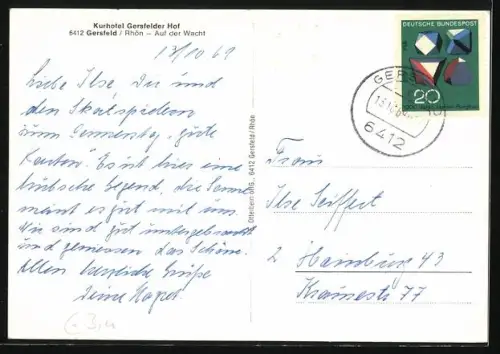 Kurhotel Gersfelder Hof
6412 Gersfeld / Rhön – Auf der Wacht
13/10 69
Liebe Ilse, Dir und
den Skatspielern
zum Donnerstag "gute
Karten". Es ist hier eine
hübsche Gegend. die Sonne
meint es gut mit uns.
Wir sind gut untergebracht
und geniessen das Schöne.
Allen herzliche Grüße
Deine
DEUTSCHE BUNDESPOST
20
6412
Frau
Ilse Seiffert
2 Hamburg 43
77
6412 Gersfeld/Rhön